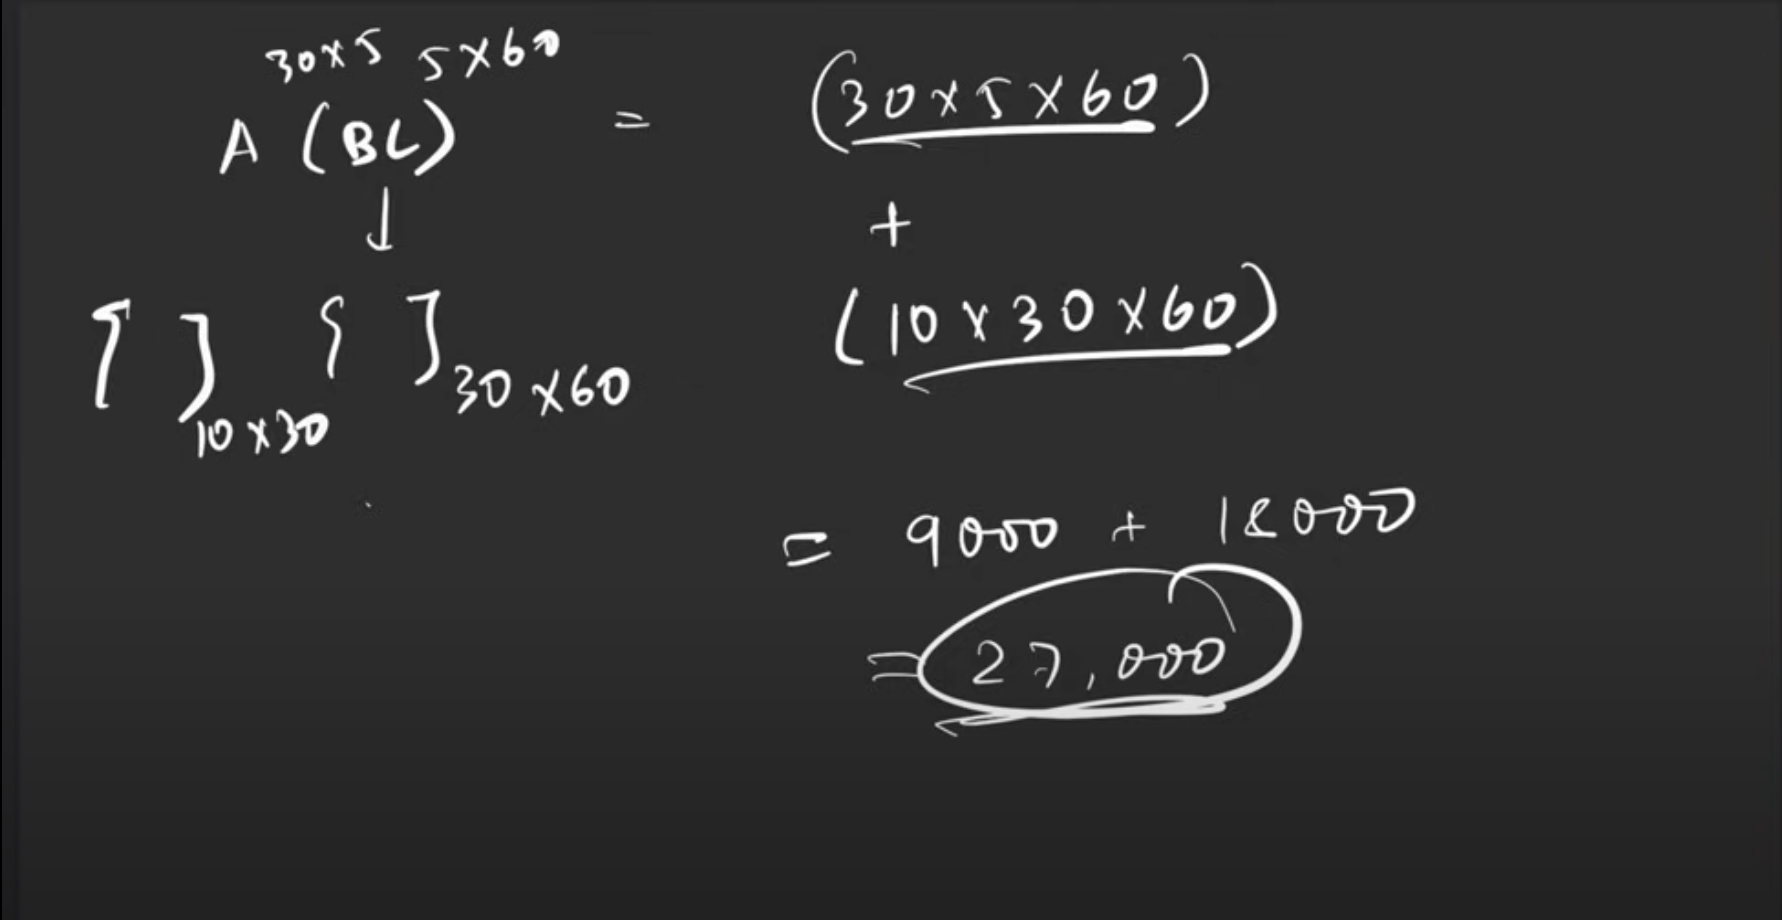 30×5 5×60
A (BC) = (30×5×60)
+
[ ]10×30 [ ]30×60 (10×30×60)
= 9000 + 18000
= 27,000